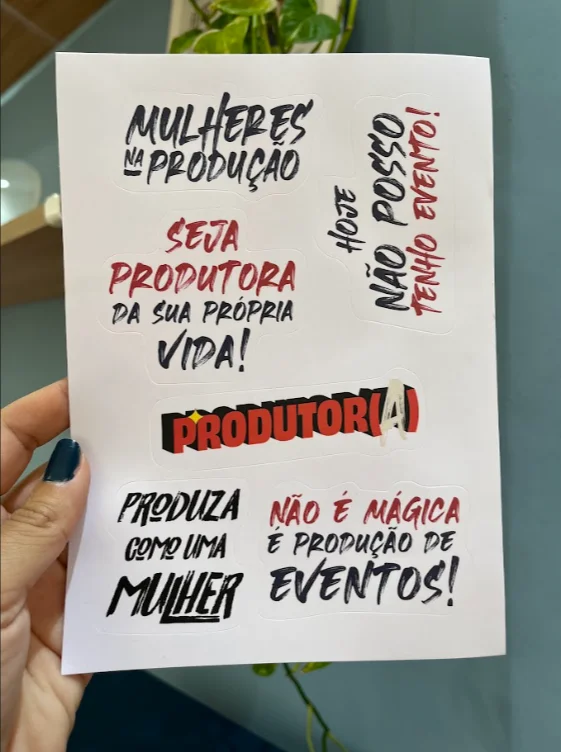 MULHERES
NA PRODUÇÃO
HOJE
NÃO POSSO
TENHO EVENTO!
SEJA
PRODUTORA
DA SUA PRÓPRIA
VIDA!
PRODUTOR(A)
PRODUZA
COMO UMA
MULHER
NÃO É MÁGICA
É PRODUÇÃO DE
EVENTOS!